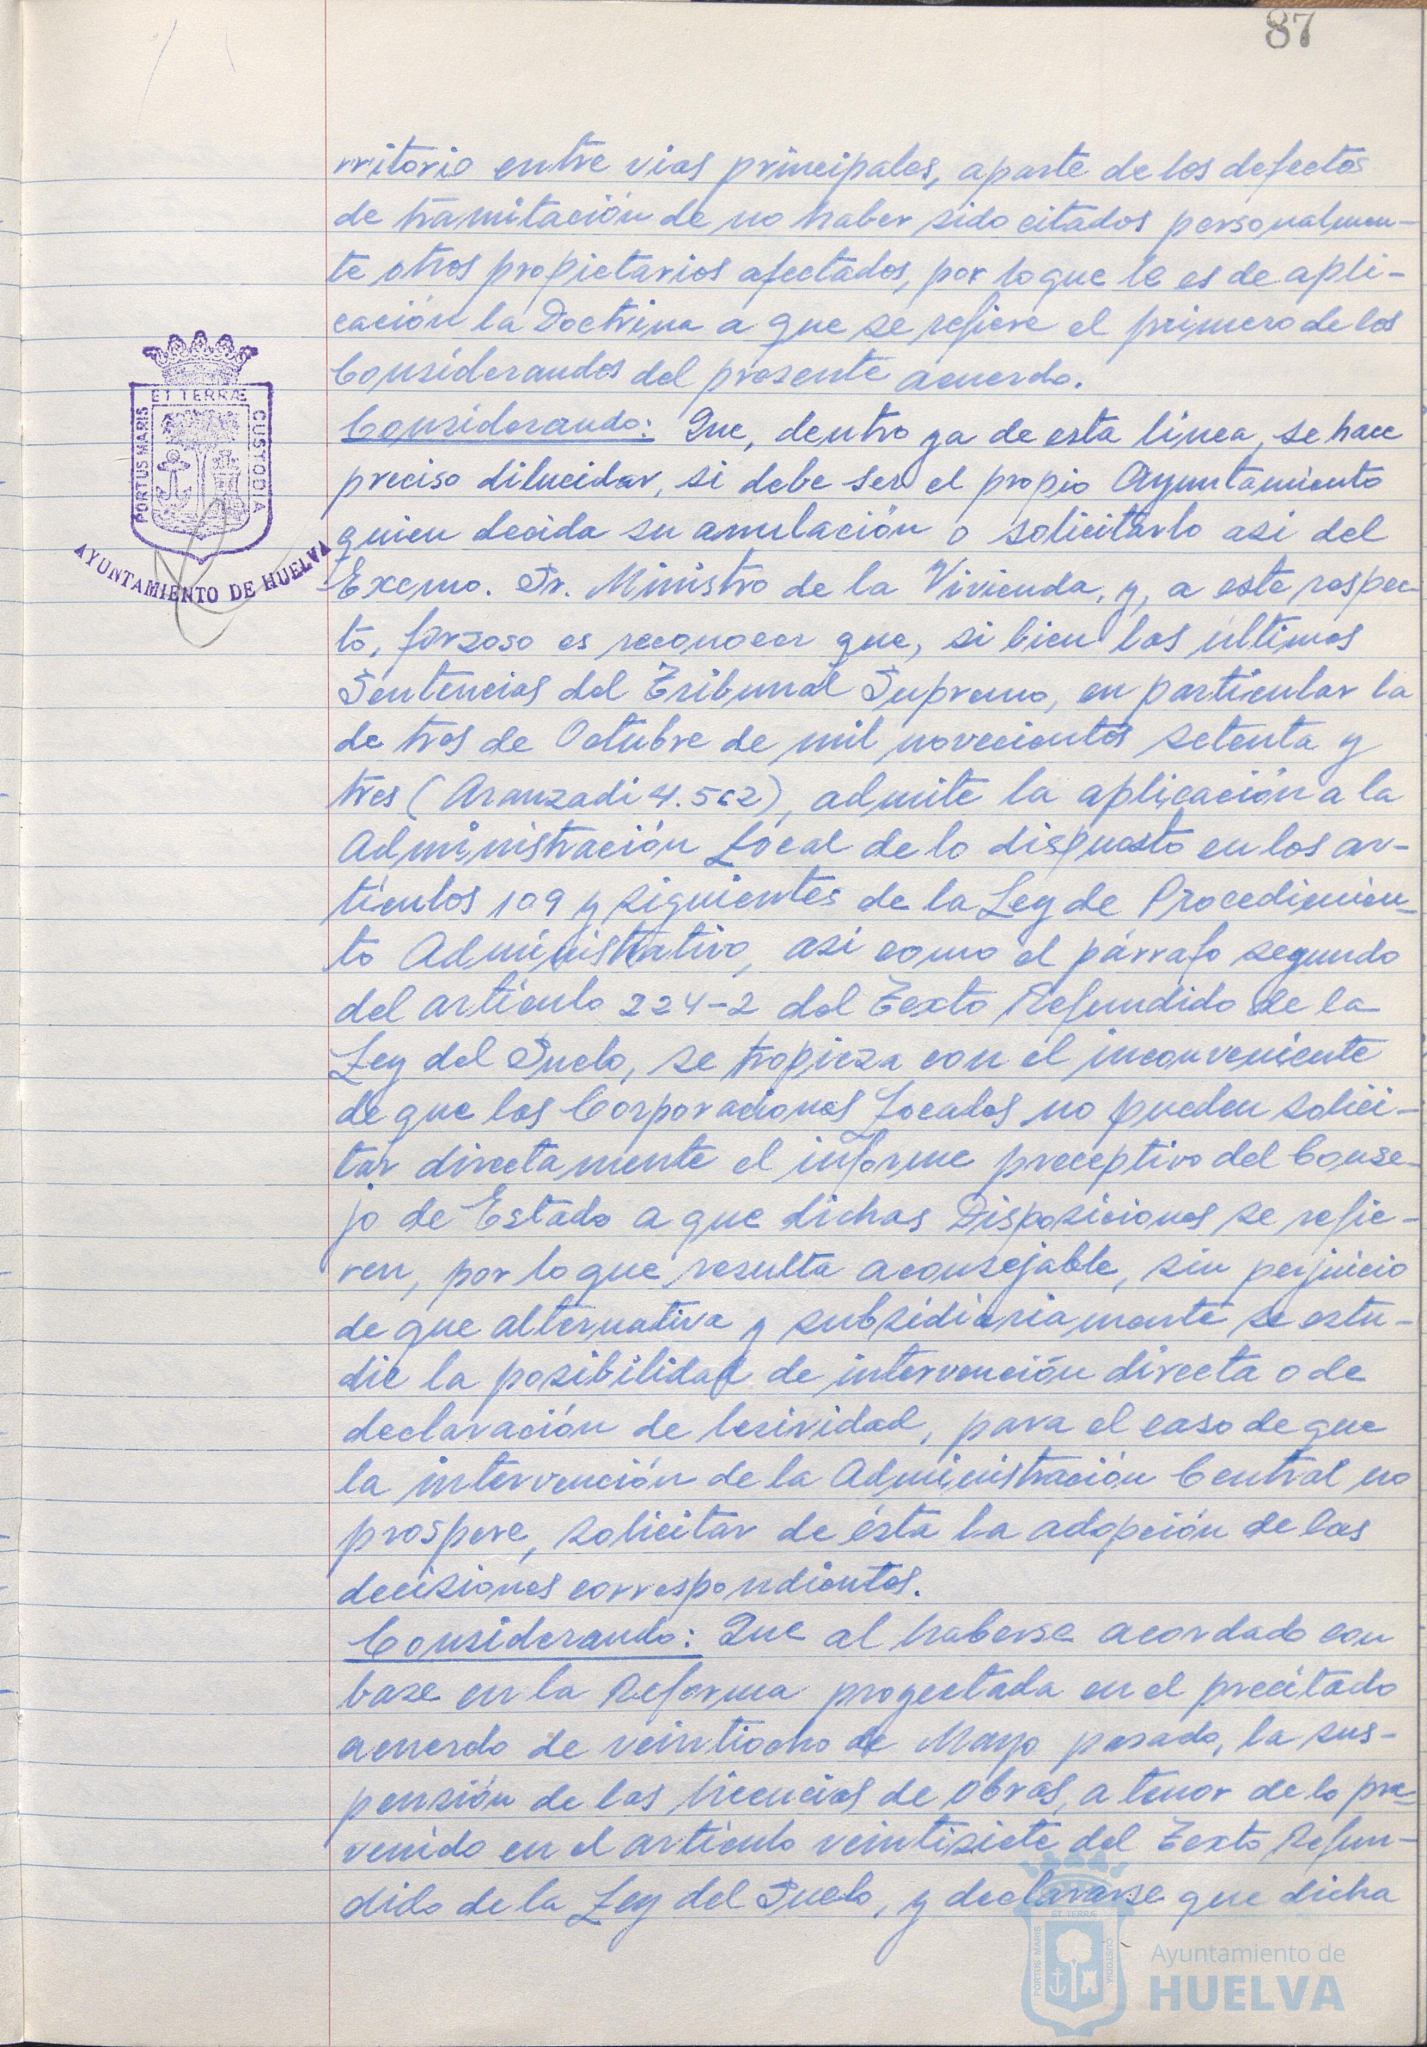 87
rritorio entre vias principales, aparte de los defectos
de tramitación de no haber sido citados personalmen-
te otros propietarios afectados, por lo que le es de apli-
cación la Doctrina a que se refiere el primero de los
Considerandos del presente acuerdo.
Considerando: Que, dentro ya de esta línea, se hace
preciso dilucidar, si debe ser el propio Ayuntamiento
quien decida su anulación o solicitarlo asi del
Excmo. Sr. Ministro de la Vivienda, y, a este respec-
to, forzoso es reconocer que, si bien las últimas
Sentencias del Tribunal Supremo, en particular la
de tres de Octubre de mil novecientos setenta y
tres (Aranzadi 4.562), admite la aplicación a la
Administración Local de lo dispuesto en los ar-
tículos 109 y siguientes de la Ley de Procedimien-
to Administrativo, asi como el párrafo segundo
del artículo 224-2 del Texto Refundido de la
Ley del Suelo, se tropieza con el inconveniente
de que las Corporaciones Locales no pueden solici-
tar directamente el informe preceptivo del Conse-
jo de Estado a que dichas Disposiciones se refie-
ren, por lo que resulta aconsejable, sin perjuicio
de que alternativa y subsidiariamente se estu-
die la posibilidad de intervención directa o de
declaración de lesividad, para el caso de que
la intervención de la Administración Central no
prospere, solicitar de ésta la adopción de las
decisiones correspondientes.
Considerando: Que al haberse acordado con
base en la Reforma proyectada en el precitado
acuerdo de veintiocho de Mayo pasado, la sus-
pensión de las licencias de obras, a tenor de lo pre-
venido en el artículo veintisiete del Texto Refun-
dido de la Ley del Suelo, y declararse que dicha
PORTUS MARIS ET TERRÆ CUSTODIA
AYUNTAMIENTO DE HUELVA
PORTUS MARIS ET TERRÆ CUSTODIA
Ayuntamiento de
HUELVA